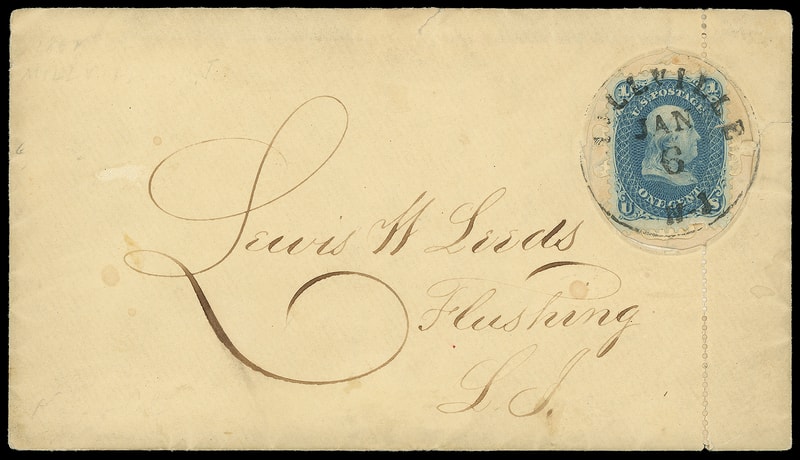 U.S. POSTAGE
JAN
6
ONE CENT
Lewis W Leeds
Flushing
L. I.